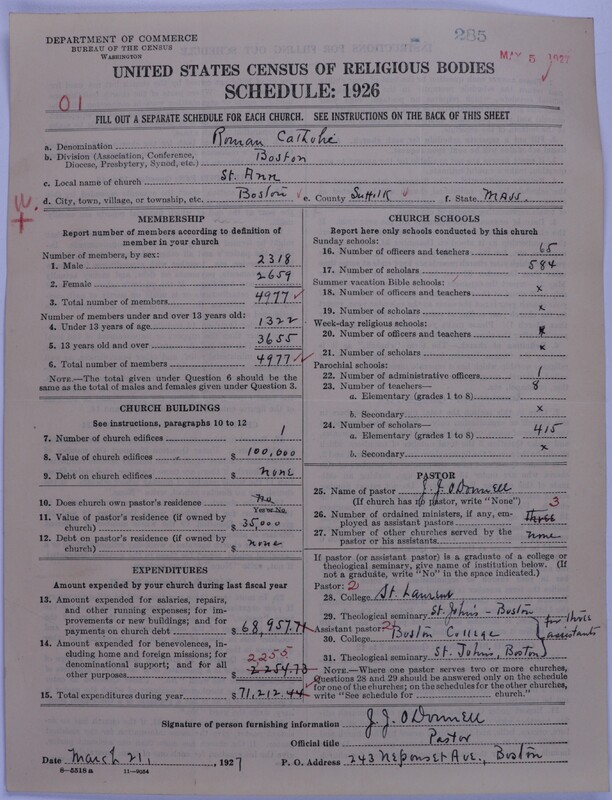 285
DEPARTMENT OF COMMERCE
BUREAU OF THE CENSUS
WASHINGTON
MAY 5 1927
UNITED STATES CENSUS OF RELIGIOUS BODIES
SCHEDULE: 1926
01
FILL OUT A SEPARATE SCHEDULE FOR EACH CHURCH. SEE INSTRUCTIONS ON THE BACK OF THIS SHEET
a. Denomination Roman Catholic
b. Division (Association, Conference, Diocese, Presbytery, Synod, etc.) Boston
c. Local name of church St. Ann
d. City, town, village, or township, etc. Boston e. County Suffolk f. State Mass.
MEMBERSHIP
Report number of members according to definition of
member in your church
Number of members, by sex:
1. Male 2318
2. Female 2659
3. Total number of members 4977
Number of members under and over 13 years old:
4. Under 13 years of age 1322
5. 13 years old and over 3655
6. Total number of members 4977
NOTE.—The total given under Question 6 should be the
same as the total of males and females given under Question 3.
CHURCH BUILDINGS
See instructions, paragraphs 10 to 12
7. Number of church edifices 1
8. Value of church edifices $ 100,000
9. Debt on church edifices $ none
10. Does church own pastor's residence no
Yes or No.
11. Value of pastor's residence (if owned by
church) $ 35,000
12. Debt on pastor's residence (if owned by
church) $ none
EXPENDITURES
Amount expended by your church during last fiscal year
13. Amount expended for salaries, repairs,
and other running expenses; for im-
provements or new buildings; and for
payments on church debt $ 68,957.71
14. Amount expended for benevolences, in-
cluding home and foreign missions; for
denominational support; and for all
other purposes $ 2255 2254.73
15. Total expenditures during year $ 71,212.44
CHURCH SCHOOLS
Report here only schools conducted by this church
Sunday schools:
16. Number of officers and teachers 65
17. Number of scholars 584
Summer vacation Bible schools:
18. Number of officers and teachers x
19. Number of scholars x
Week-day religious schools:
20. Number of officers and teachers x
21. Number of scholars x
Parochial schools:
22. Number of administrative officers 1
23. Number of teachers— 8
a. Elementary (grades 1 to 8)
b. Secondary x
24. Number of scholars—
a. Elementary (grades 1 to 8) 415
b. Secondary x
PASTOR
25. Name of pastor J. J. O'Donnell
(If church has no pastor, write "None") 3
26. Number of ordained ministers, if any, em-
ployed as assistant pastors three
27. Number of other churches served by the
pastor or his assistants none
If pastor (or assistant pastor) is a graduate of a college or
theological seminary, give name of institution below. (If
not a graduate, write "No" in the space indicated.)
Pastor: 2
28. College St. Laurent
29. Theological seminary St. John's - Boston
Assistant pastor: 2
30. College Boston College
31. Theological seminary St. John's, Boston
for three
assistants
NOTE.—Where one pastor serves two or more churches,
Questions 28 and 29 should be answered only on the schedule
for one of the churches; on the schedules for the other churches,
write "See schedule for church."
Signature of person furnishing information J. J. O'Donnell
Official title Pastor
Date March 21, 1927 P. O. Address 243 Neponset Ave., Boston
8-5518a 11-9054